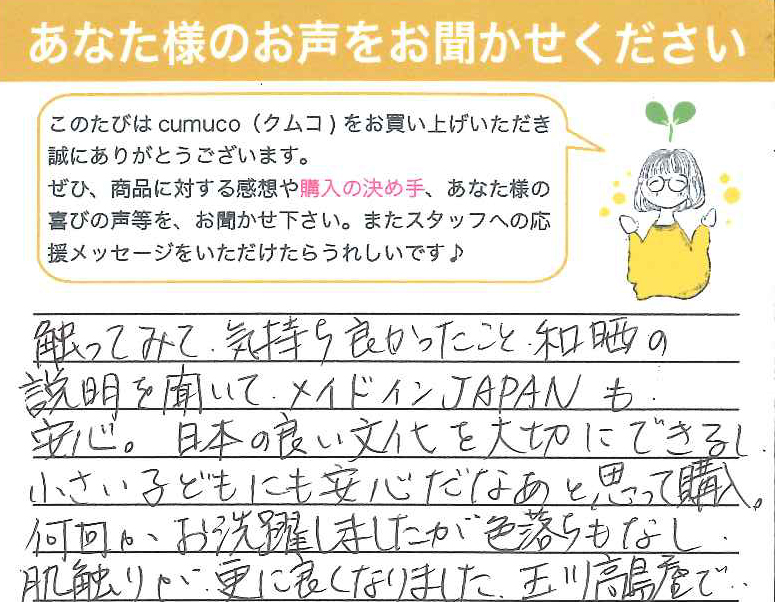 あなた様のお声をお聞かせください
このたびは cumuco（クムコ）をお買い上げいただき
誠にありがとうございます。
ぜひ、商品に対する感想や購入の決め手、あなた様の
喜びの声等を、お聞かせ下さい。またスタッフへの応
援メッセージをいただけたらうれしいです♪
触ってみて、気持ち良かったこと、和晒の
説明を聞いて、メイドインJAPANも、
安心。日本の良い文化を大切にできるし、
小さい子どもにも安心だなあと思って購入。
何回か、お洗濯しましたが色落ちもなし、
肌触りが、更に良くなりました、玉川高島屋で、